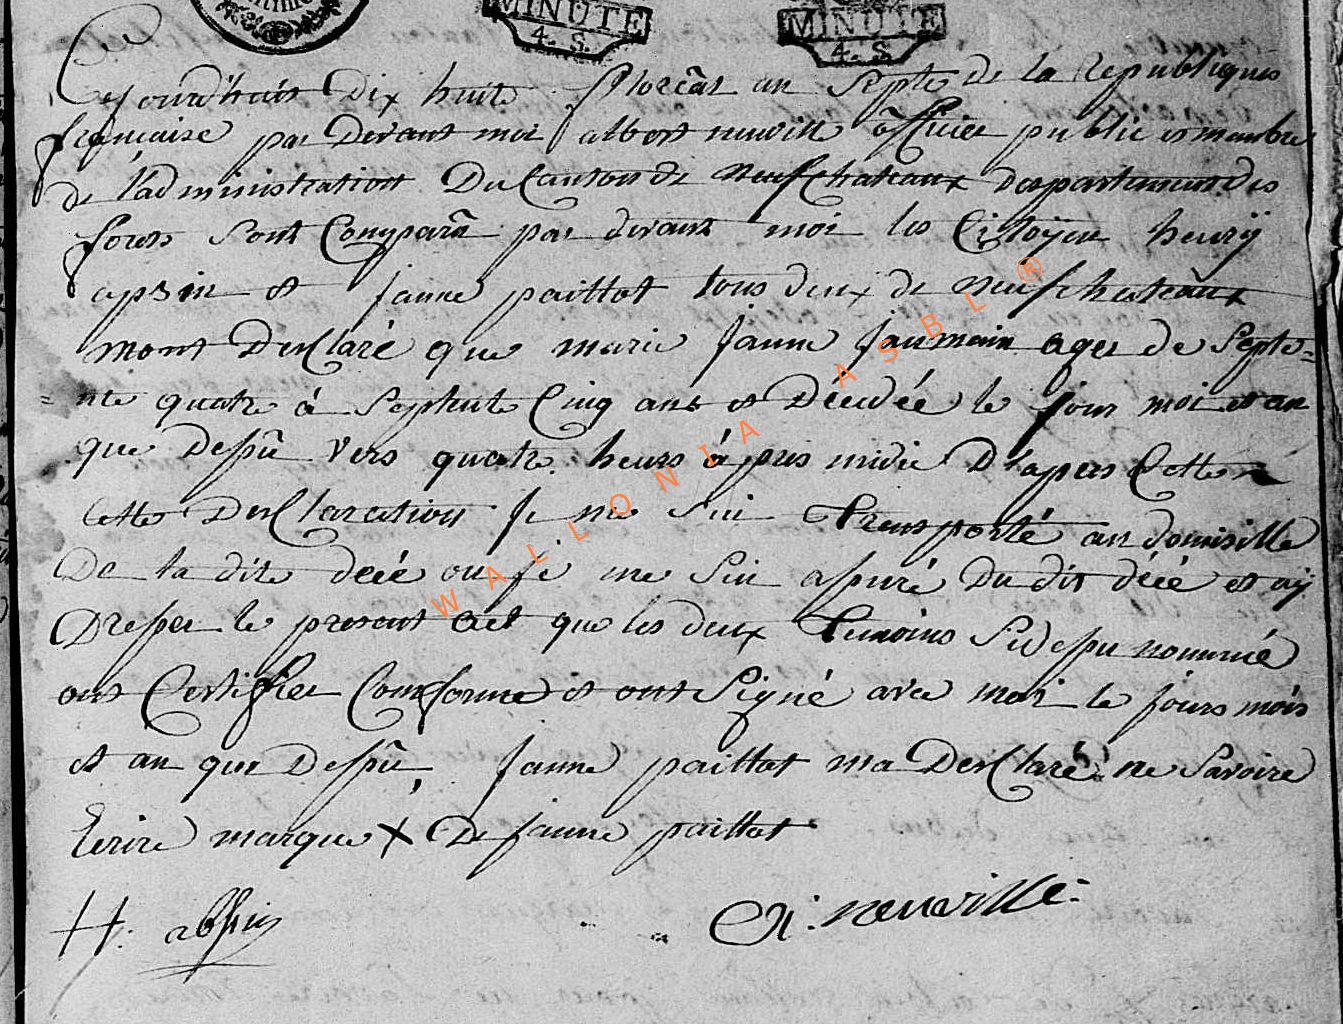 MINUTE
4. S.
MINUTE
4. S
Cejourdhuis Dix huite floréal an septe de la republiques
françaises par Devant moi albert neuvill officier public et membre
de l'administration Du Canton de Neufchateaux despartement des
forets sont Comparu par devant moi les Citoÿen henrÿ
apsin et janne paittot tous deux de Neufchateaux
mont DesClaré que marie janne jaumain ages de Septe=
=nte quatre à Septente Cinq ans et Décedée le jour moi et an
que Dessu vers quatre heurs à pres midie D'apers Cette
Cette DesClaration je me sui transporté au domisille
De la dite décé ou je me sui assuré Du dit décé et aÿ
Dresser le present act que les deux temoins Sidessu nommé
ont Certiffier Comforme et ont Signé avec moi le jours mois
et an que Dessu, janne paittot ma DesClaré ne Savoire
Ecrire marque X De janne paittot
H: abssin
A: neuville
WALLONIA ASBL ®